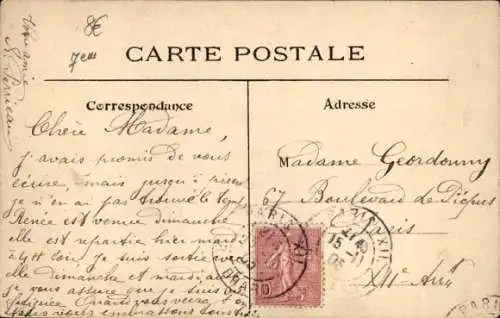 8€
7em
Votre amie
CARTE POSTALE
Correspondance
Adresse
Chère Madame,
j'avais promis de vous
écrire, mais jusqu'à
je n'en ai pas trouvé le
Renée est venue dimanche
elle est repartie hier mardi
à 4h Loir je suis sortie
elle dimanche et mardi
je vous assure que je suis
fatiguée Quand vous
Nous vous embrassons tous
Madame Geordonny
67 Boulevard de Picpus
Paris
XIIe Arrt
PARIS XII
15
06
PARIS